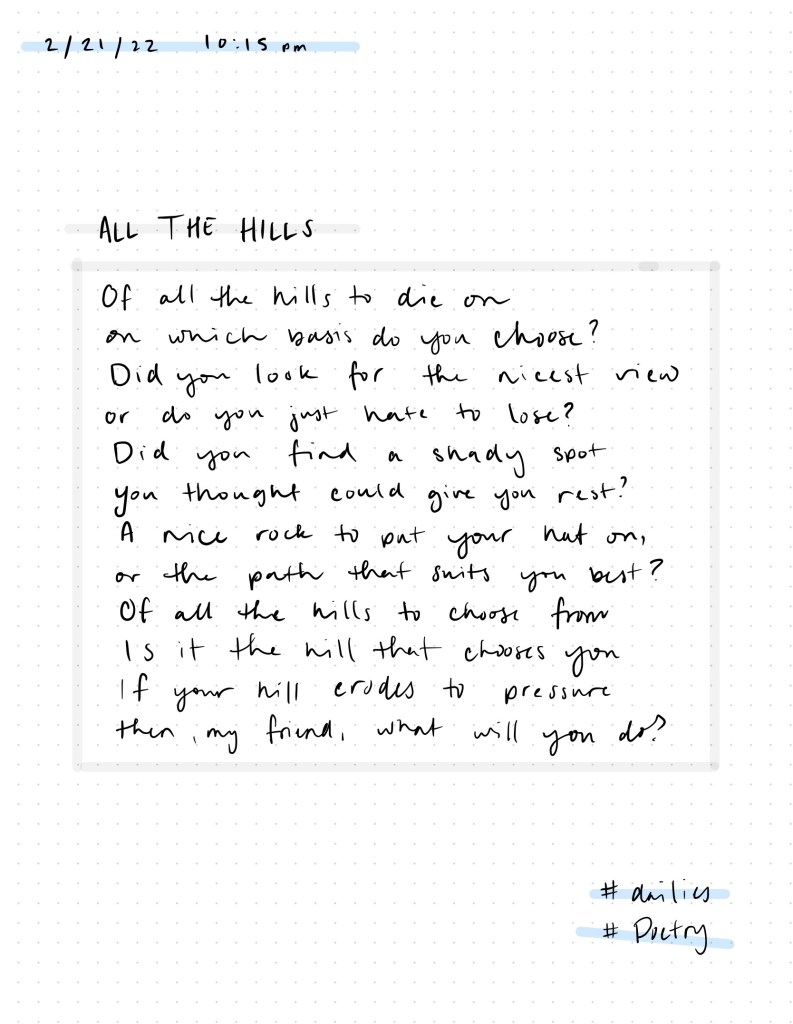 2/21/22 10:15 pm
ALL THE HILLS
Of all the hills to die on
on which basis do you choose?
Did you look for the nicest view
or do you just hate to lose?
Did you find a shady spot
you thought could give you rest?
A nice rock to put your hat on,
or the path that suits you best?
Of all the hills to choose from
Is it the hill that chooses you
If your hill erodes to pressure
then, my friend, what will you do?
# dailies
# Poetry